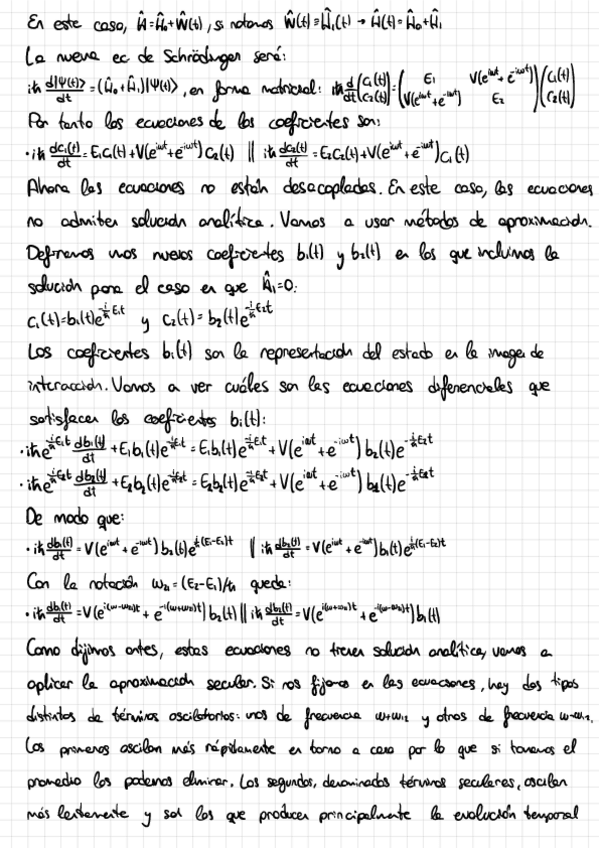 En este caso, Ĥ=Ĥ₀+Ŵ(t), si notamos Ŵ(t)≡Ĥ₁(t) → Ĥ(t)=Ĥ₀+Ĥ₁
La nueva ec de Schrödinger será:
iħ d|Ψ(t)>/dt = (Ĥ₀+Ĥ₁)|Ψ(t)>, en forma matricial: iħ d/dt (C₁(t) C₂(t)) = (E₁ V(e^{iωt}+e^{-iωt}) V(e^{iωt}+e^{-iωt}) E₂)(C₁(t) C₂(t))
Por tanto las ecuaciones de los coeficientes son:
·iħ dc₁(t)/dt = E₁C₁(t)+V(e^{iωt}+e^{-iωt})C₂(t) || iħ dc₂(t)/dt = E₂C₂(t)+V(e^{iωt}+e^{-iωt})C₁(t)
Ahora las ecuaciones no están desacopladas. En este caso, las ecuaciones
no admiten solución analítica. Vamos a usar métodos de aproximación.
Definamos unos nuevos coeficientes b₁(t) y b₂(t) en los que incluimos la
solución para el caso en que Ĥ₁=0:
C₁(t)=b₁(t)e^{-i/ħ E₁t} y C₂(t)=b₂(t)e^{-i/ħ E₂t}
Los coeficientes bᵢ(t) son la representación del estado en la imagen de
interacción. Vamos a ver cuáles son las ecuaciones diferenciales que
satisfacen los coeficientes bᵢ(t):
·iħe^{-i/ħ E₁t} db₁(t)/dt + E₁b₁(t)e^{-i/ħ E₁t} = E₁b₁(t)e^{-i/ħ E₁t} + V(e^{iωt}+e^{-iωt})b₂(t)e^{-i/ħ E₂t}
·iħe^{-i/ħ E₂t} db₂(t)/dt + E₂b₂(t)e^{-i/ħ E₂t} = E₂b₂(t)e^{-i/ħ E₂t} + V(e^{iωt}+e^{-iωt})
De modo que:
·iħ db₁(t)/dt = V(e^{iωt}+e^{-iωt})b₂(t)e^{i/ħ(E₁-E₂)t} || iħ db₂(t)/dt = V(e^{iωt}+e^{-iωt})b₁(t)
Con la notación ω₂₁=(E₂-E₁)/ħ queda:
·iħ db₁(t)/dt = V(e^{i(ω-ω₂₁)t} + e^{-i(ω+ω₂₁)t})b₂(t) || iħ db₂(t)/dt = V(e^{i(ω+ω₂₁)t} + e^{-i(ω-ω₂₁)t})b₁(t)
Como dijimos antes, estas ecuaciones no tienen solución analítica, vamos a
aplicar la aproximación secular. Si nos fijamos en las ecuaciones, hay dos tipos
distintos de términos oscilatorios: unos de frecuencia ω+ω₁₂ y otros de frecuencia ω-ω₁₂.
Los primeros oscilan más rápidamente en torno a cero por lo que si tomamos el
promedio los podemos eliminar. Los segundos, denominados términos seculares, oscilan
más lentamente y son los que producen principalmente la evolución temporal